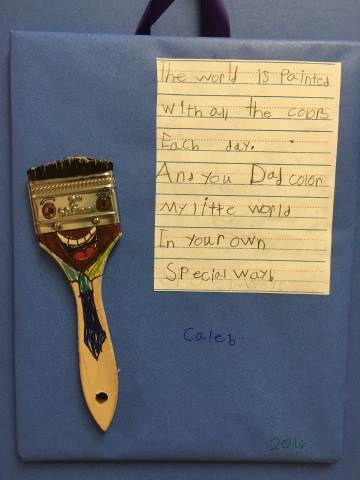 the world is painted
with all the colors
Each day.
And you Dad color
my little world
In your own
Special wayb
Caleb
2016